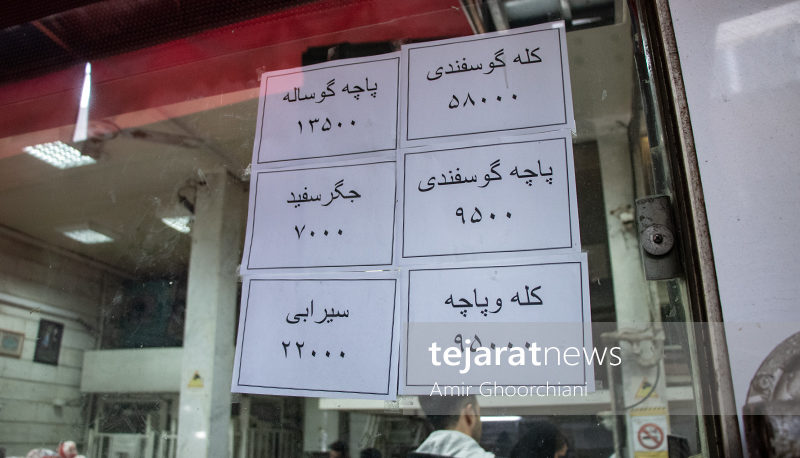 کله گوسفندی
۵۸۰۰۰
پاچه گوساله
۱۳۵۰۰
پاچه گوسفندی
۹۵۰۰
جگر سفید
۷۰۰۰
کله و پاچه
۹۵۰۰۰
سیرابی
۲۲۰۰۰
tejaratnews
Amir Ghoorchiani